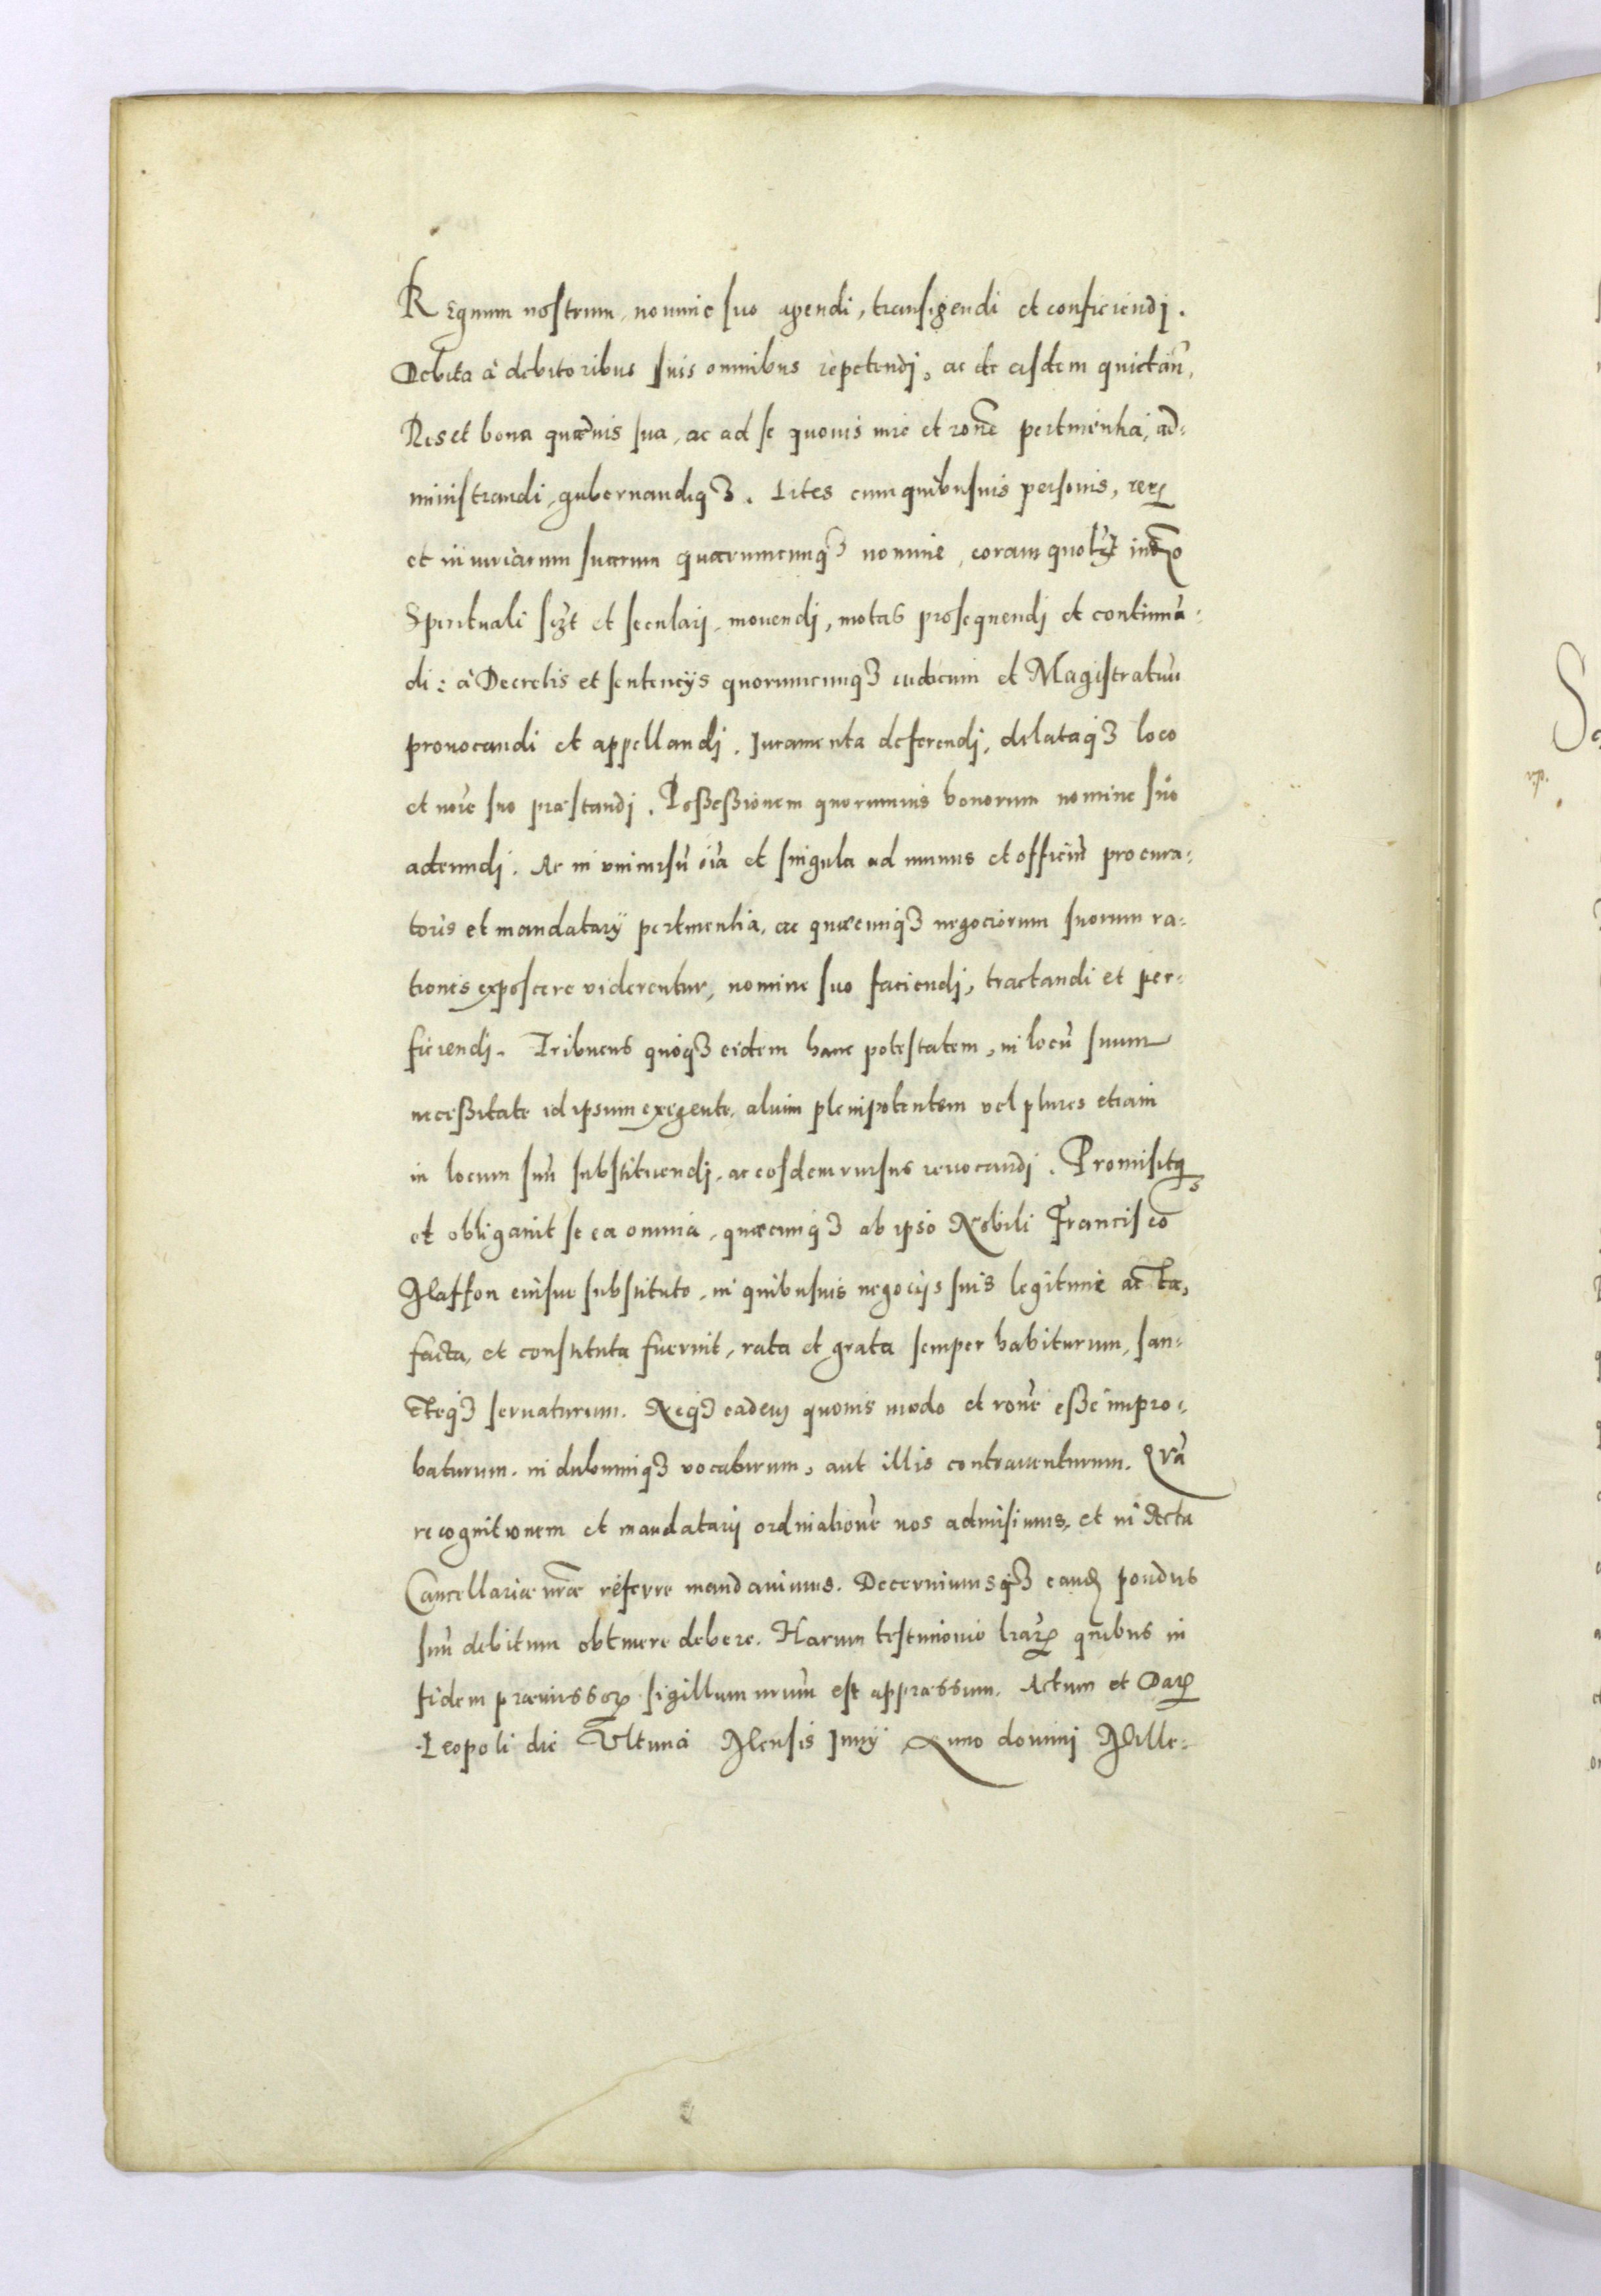 Regnum nostrum, nomine suo agendi, transigendi et conficiendj.
Debita à debitoribus suis omnibus repetendj, ac de eisdem quietan̄,
Res et bona quævis sua, ac ad se quovis iure et ron̄e pertinentia, ad-
ministrandi, gubernandiqꝫ. Lites cum quibusuis personis, reꝝ
et iniuriarum suarum quarumcunqꝫ nomine, coram quolꝫt
Spirituali sꝫt et secularj, mouendj, motas prosequendj et continuā-
di: à Decretis et sentencijs quorumcunqꝫ iudicum et Magistratuū
prouocandi et appellandj. Juramenta deferendj, delataqꝫ loco
et noīe suo præstandj. Poßeßionem quorumuis bonorum nomine suo
adeundj. Ac in uniuersū oīa et singula ad munus et officiū procura-
toris et mandatarij pertinentia, ac quæcunqꝫ negociorum suorum ra-
tiones exposcere viderentur, nomine suo faciendj, tractandi et per-
ficiendj. Tribuens quoqꝫ eidem hanc potestatem, in locū suum
neceßitate id ipsum exigente, alium plenipotentem vel plures etiam
in locum suū substituendj, ac eosdem rursus reuocandj. Promisitqꝫ
et obligauit se ea omnia, quæcunqꝫ ab ipso Nobili Francisco
Maffon eiusue substituto, in quibusuis negocijs suis legitime acta,
facta, et constituta fuerint, rata et grata semper habiturum, san-
cteqꝫ seruaturum. Neqꝫ eadem quouis modo et ron̄e eße impro-
baturum, in dubiumqꝫ vocaturum, aut illis contrauenturum. Quā
recognitionem et mandatarij ordinationē nos admisimus, et in Acta
Cancellariæ nr̄æ referre mandauimus. Decernimusqꝫ eandꝫ pondus
suū debitum obtinere debere. Harum testimonio lr̄arꝝ quibus in
fidem præmissorꝝ sigillum nr̄um est appræssum. Actum et Datꝝ
Leopoli die Vltima Mensis Junij Anno dominj Mille-